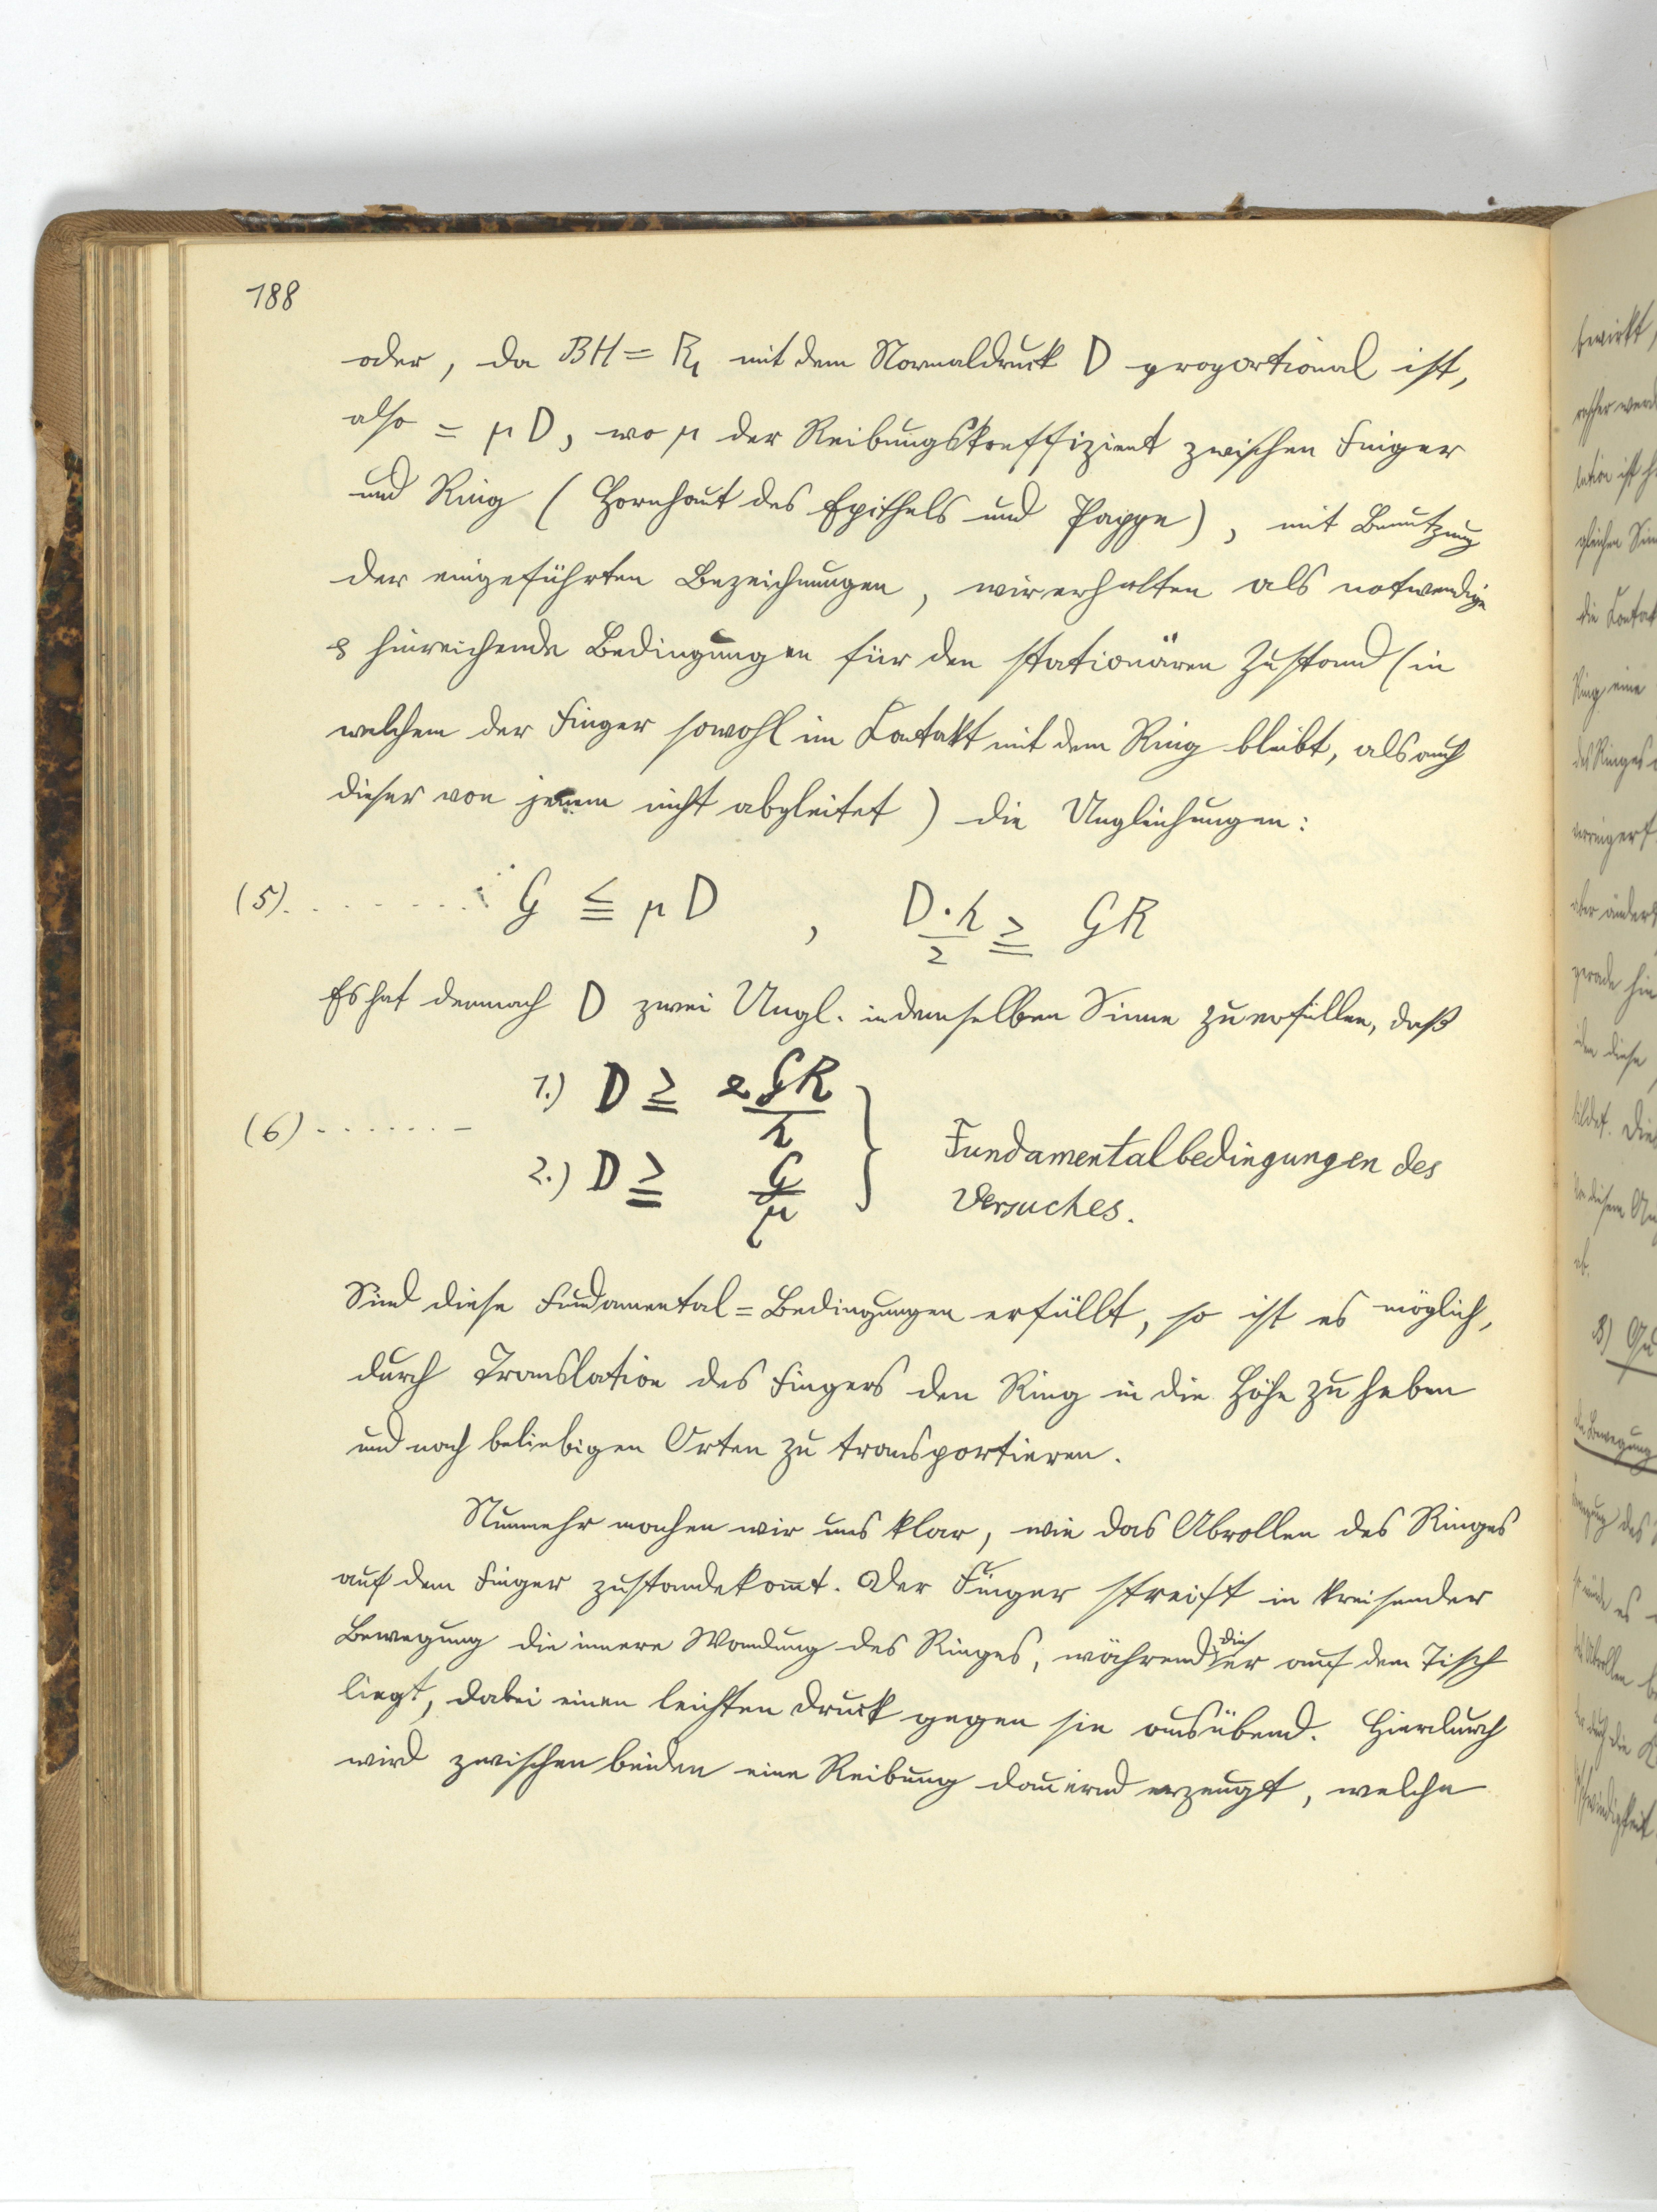 188
oder, da BH = R₁ mit dem Normaldruck D proportional ist,
also = μD, wo μ der Reibungskoeffizient zwischen Finger
und Ring (Hornhaut des Epithels und Pappe), mit Benutzung
der eingeführten Bezeichnungen, wir erhalten als notwendige
& hinreichende Bedingungen für den stationären Zustand (in
welchem der Finger sowohl im Kontakt mit dem Ring bleibt, als auch
dieser von jenem nicht abgleitet) die Ungleichungen:
(5). . . . . . . . G ≦ μD , D·h/2 ≧ GR
Es hat demnach D zwei Ungl. in demselben Sinne zu erfüllen, daß
1.) D ≧ 2GR/h
(6) . . . . . . –
2.) D ≧ G/μ
Fundamentalbedingungen des
Versuches.
Sind diese Fundamental=Bedingungen erfüllt, so ist es möglich,
durch Translation des Fingers den Ring in die Höhe zu heben
und nach beliebigen Orten zu transportieren.
Nunmehr machen wir uns klar, wie das Abrollen des Ringes
auf dem Finger zustandekommt. Der Finger streift in kreisender
Bewegung die innere Wandung des Ringes, während dieser auf dem Tisch
liegt, dabei einen leichten Druck gegen sie ausübend. Hierdurch
wird zwischen beiden eine Reibung dauernd erzeugt, welche